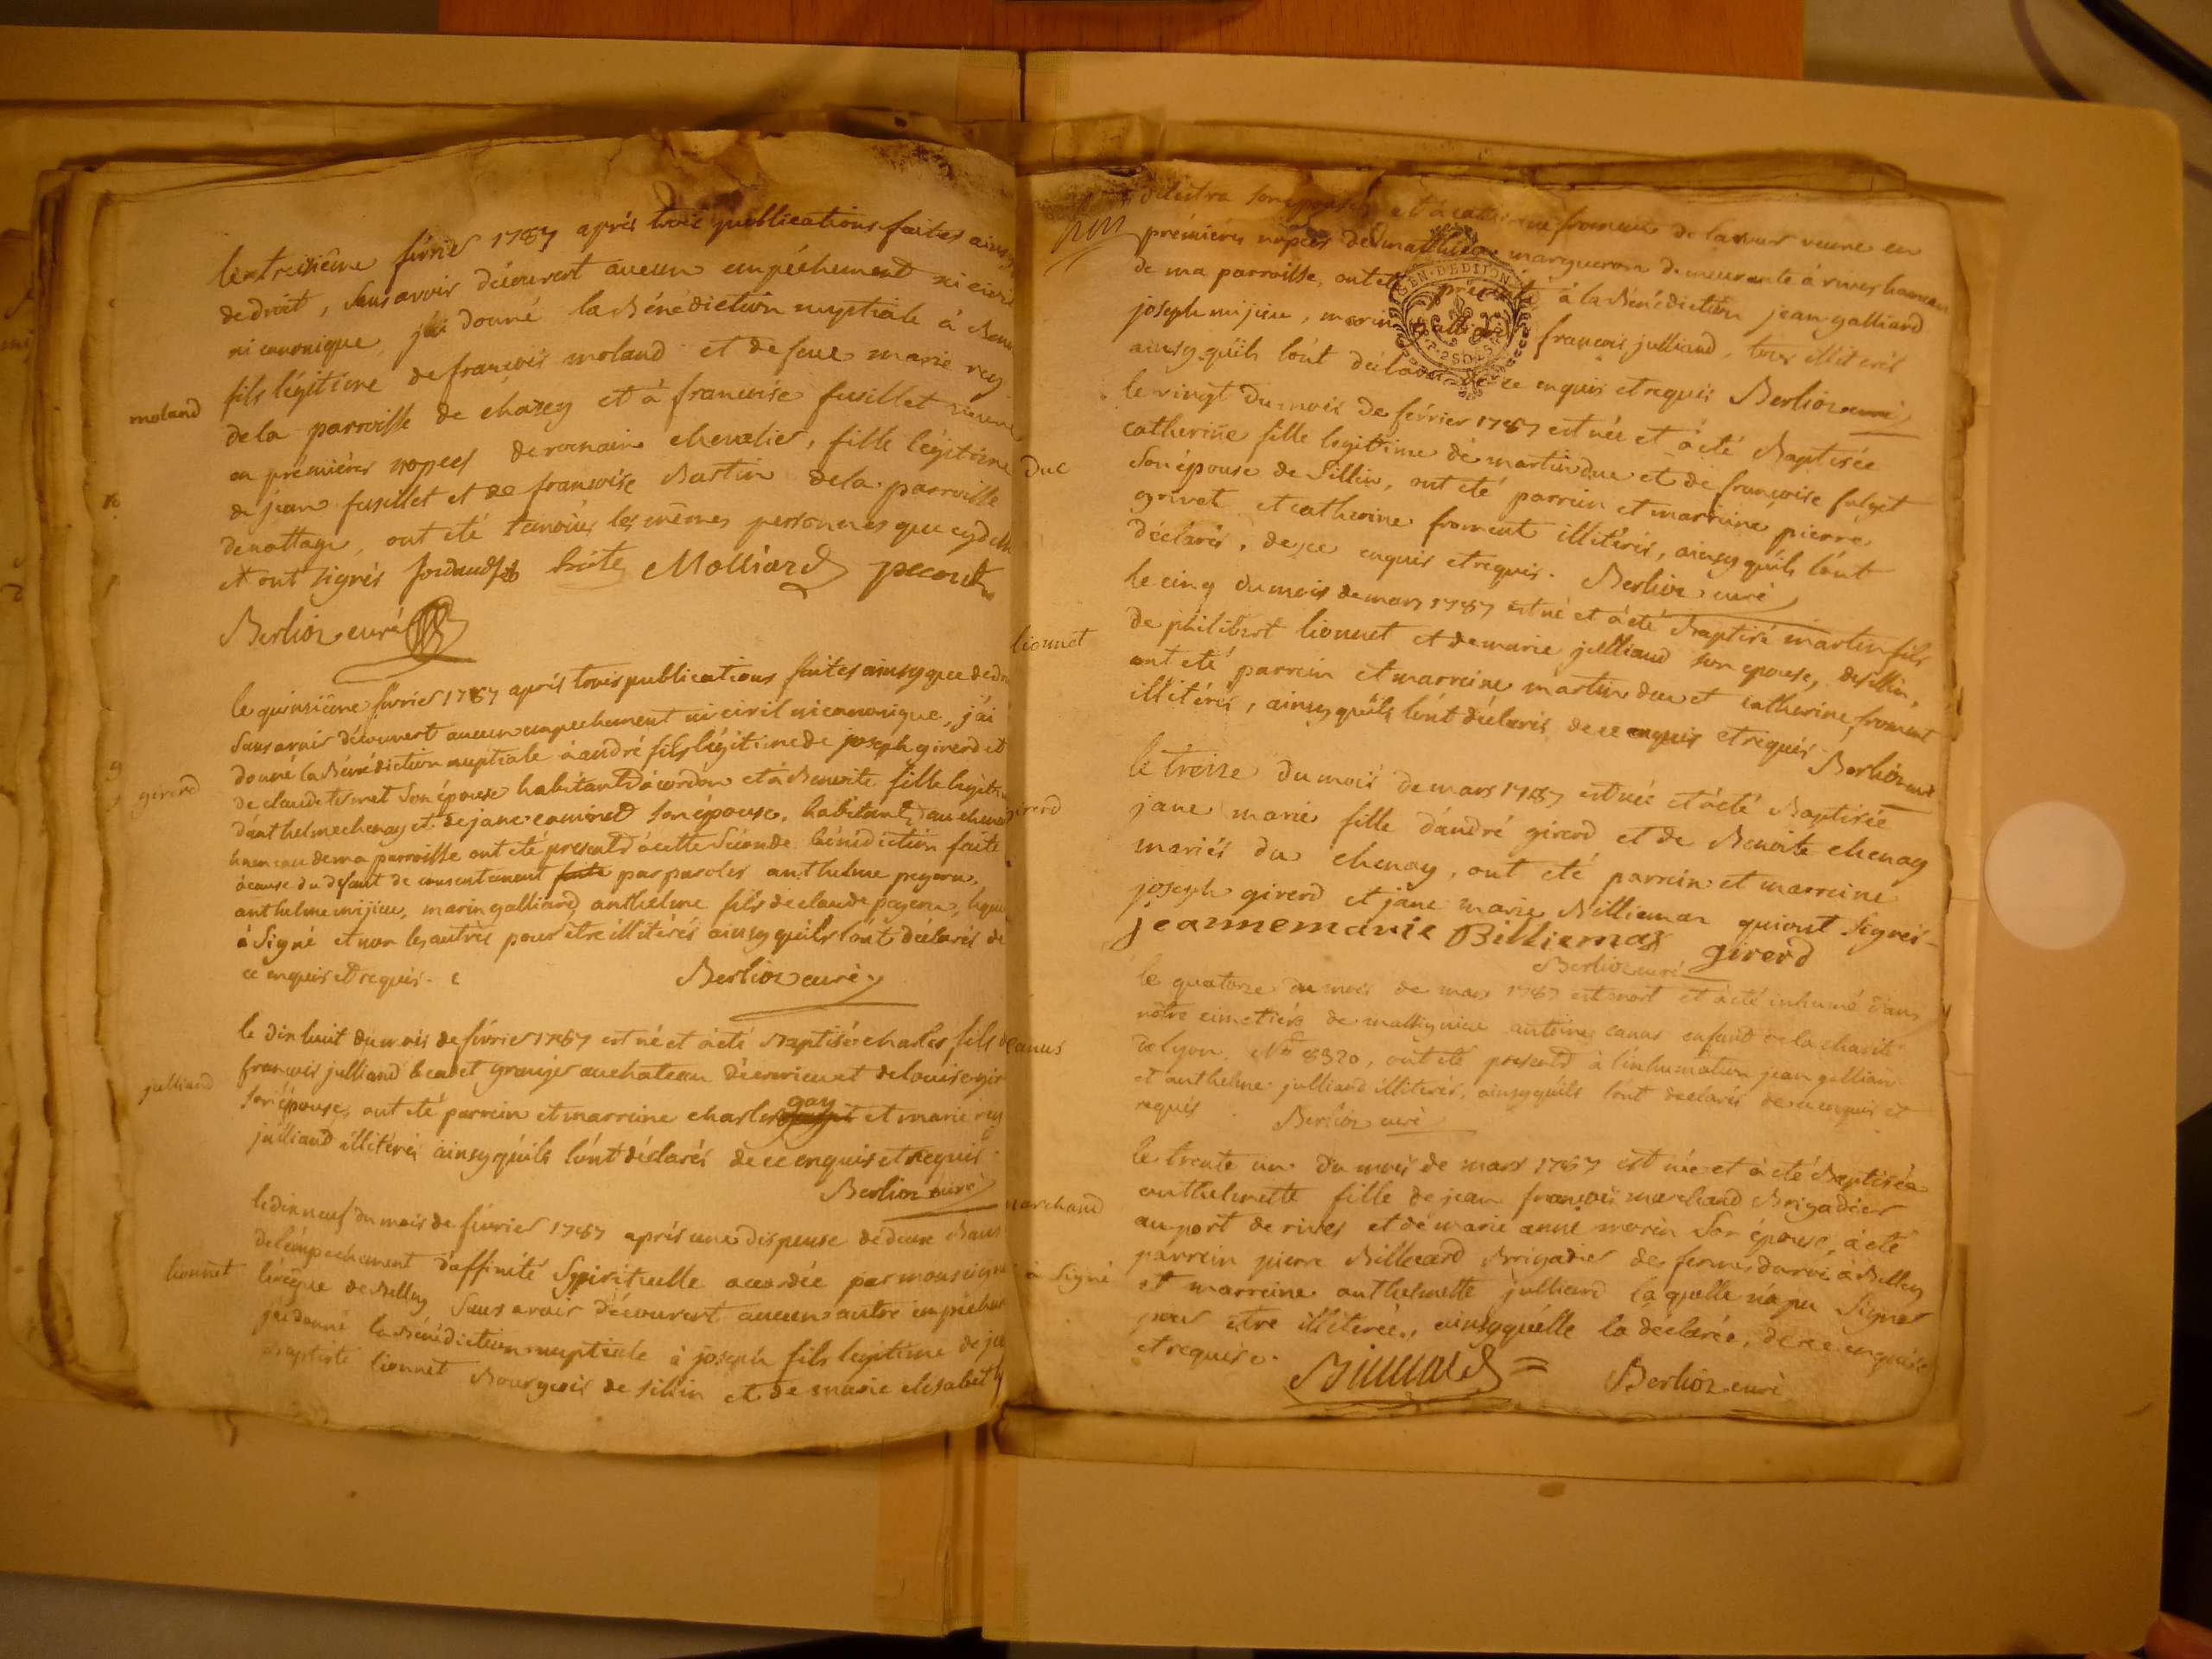 le treisième févrièr 1787 après trois publications faites ainsy
de droit, sans avoir découvert aucun empéchement ni civil
ni canonique, j'ai donné la Bénédiction nuptiale à
fils légitime de françois moland et de feue marie rey
moland
de la parroisse de chazey et à francoise fusillet veuve
en prémiéres nopces de romain chevalier, fille légitime
de jean fusillet et de francoise Martin de la parroisse
de nattage, ont été temoins les mêmes personnes que cy dessus
et ont signés Molliard
Berlioz curé
le quinsiême févrièr 1787 après trois publications faites ainsy que de droit
sans avoir découvert aucun empechement ni civil ni canonique, j'ai
donné la Bénédiction nuptiale à andré fils légitime de joseph girerd et
girerd
de claude son épouse habitants à cordon et à Benoite fille legitime
d'anthelme chenay et de jane son épouse, habitants au chenay
hameau de ma parroisse ont été presents à cette séconde bénédiction faite
à cause du défaut de consentement par paroles anthelme
anthelme mijieu, marin galliard, anthelme fils de claude lequel
à signé et non les autres pour être illitérés ainsy qu'ils l'ont déclarés de
ce enquis et requis.
Berlioz curé
le dix huit du mois de févrièr 1787 est né et à eté Baptisé charles fils de
françois julliand granger au chateau et de louise
julliand
son épouse, ont eté parrein et marreine charles gay et marie rey
julliand illitérés ainsy qu'ils l'ont déclarés de ce enquis et requis.
Berlioz curé
le dix neuf du mois de févrièr 1787 après une dispense de deux Bans
de l'empechement d'affinité Spirituelle accordée par monseigneur
lionnet
l'évêque de Belley sans avoir découvert aucun autre empechement
j'ai donné la Bénédiction nuptiale à joseph fils legitime de
Baptiste lionnet Bourgeois de sillin et de marie elisabeth
son épouse, et à catherine froment de veuve en
prémieres nopces de matthieu margueron demeurante à rives hameau
de ma parroisse, ont eté présents à la Bénédiction jean galliard
joseph mijieu, marin galliard françois julliand, tous illiterés
ainsy qu'ils l'ont déclarés de ce enquis et requis Berlioz curé
le vingt du mois de févrièr 1787 est née et à eté Baptisée
duc
catherine fille legitime de martin duc et de françoise
son épouse de Sillin, ont eté parrein et marreine pierre
grivat et catherine froment illitérés, ainsy qu'ils l'ont
déclarés, de ce enquis et requis. Berlioz curé
le cinq du mois de mars 1787 est né et à eté Baptisé martin fils
lionnet
de philibert lionnet et de marie julliand son epouse, de sillin,
ont eté parrein et marreine martin duc et catherine froment
illitérés, ainsy qu'ils l'ont déclarés de ce enquis et requis Berlioz curé
le treize du mois de mars 1787 est née et à eté Baptisée
girerd
jane marie fille d'andré girerd et de Benoite chenay
mariés du chenay, ont eté parrein et marreine
joseph girerd et jane marie Billiemaz qui ont signés
jeannemarie Billiemaz girerd
Berlioz curé
le quatorze du mois de mars 1787 est mort et à eté inhumé dans
canus
notre cimetière de massignieu antoine canus enfant de la charité
de lyon. No 8320, ont eté presents à l'inhumation jean galliard
et anthelme julliand illiterés, ainsy qu'ils l'ont declarés de ce enquis et
requis Berlioz curé
le trente un du mois de mars 1787 est née et à eté Baptisée
marchand
anthelmette fille de jean françois marchand Brigadier
au port de rives et de marie anne morin son épouse, à eté
parrein pierre Billieard Brigadier des fermes du roi à Belley
à signé
et marreine anthelmette julliard laquelle n'a pu signer
pour etre illiterée, ainsy qu'elle la déclarée, de ce enquise
et requise.
Berlioz curé